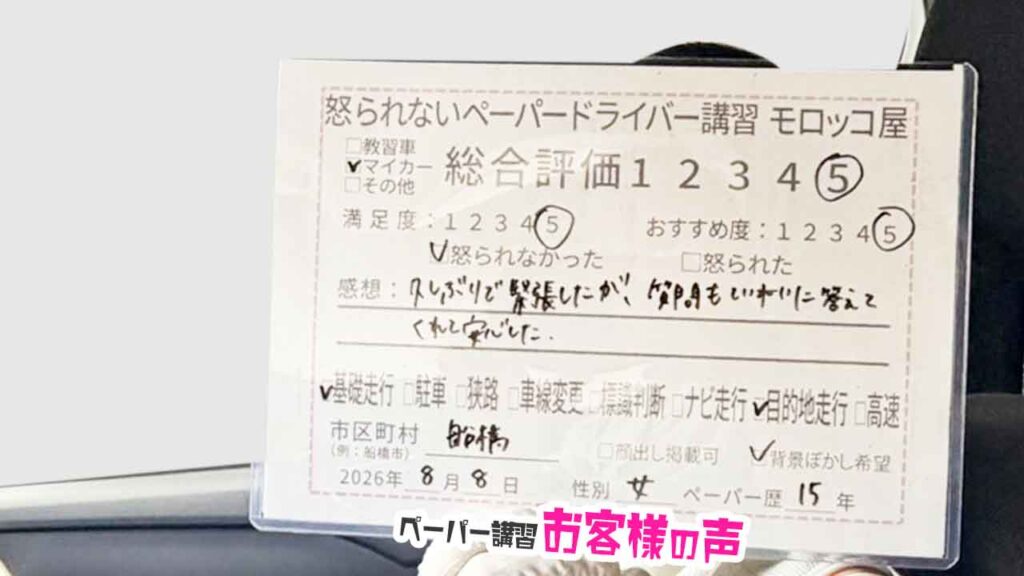 怒られないペーパードライバー講習 モロッコ屋
□教習車
✓マイカー
□その他
総合評価 1 2 3 4 ⑤
満足度：1 2 3 4 ⑤ おすすめ度：1 2 3 4 ⑤
✓怒られなかった □怒られた
感想：久しぶりで緊張したが、質問もていねいに答えて
くれて安心した.
✓基礎走行 □駐車 □狭路 □車線変更 □標識判断 □ナビ走行 ✓目的地走行 □高速
市区町村 船橋
(例：船橋市)
□顔出し掲載可 ✓背景ぼかし希望
2026年 8月 8日 性別 女 ペーパー歴 15年
ペーパー講習 お客様の声